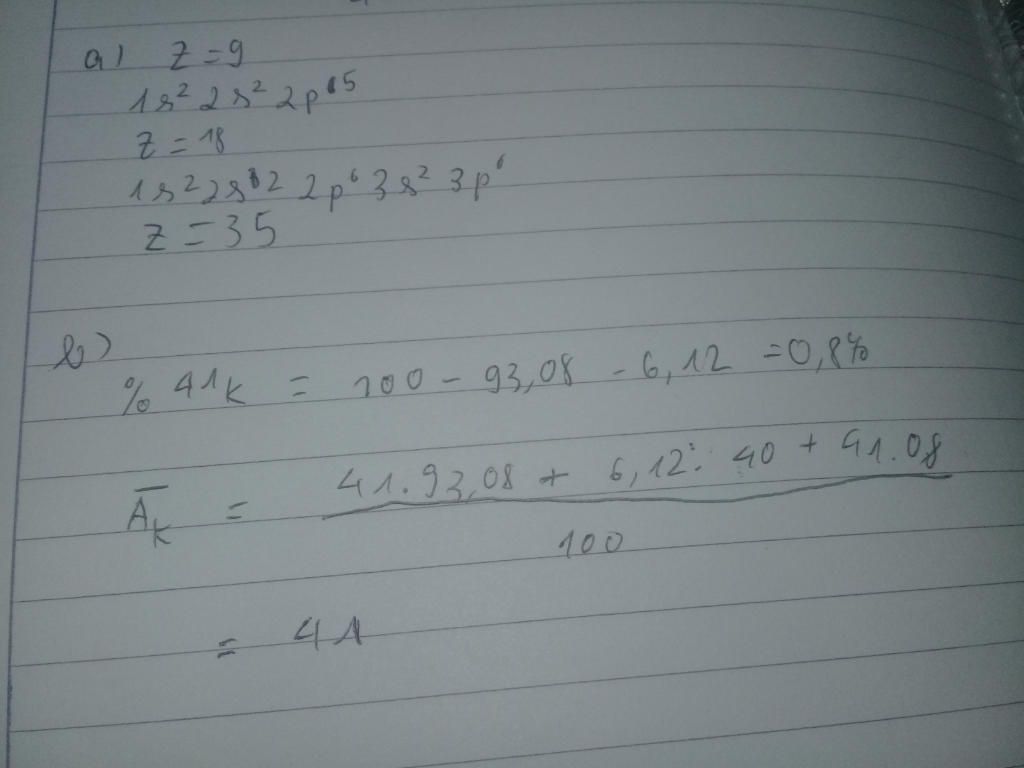 a) Z = 9
1s² 2s² 2p⁵
Z = 18
1s² 2s² 2p⁶ 3s² 3p⁶
Z = 35
b)
% 41K = 100 - 93,08 - 6,12 = 0,8%
41.93,08 + 6,12. 40 + 41.08
A̅K = ―
100
= 41